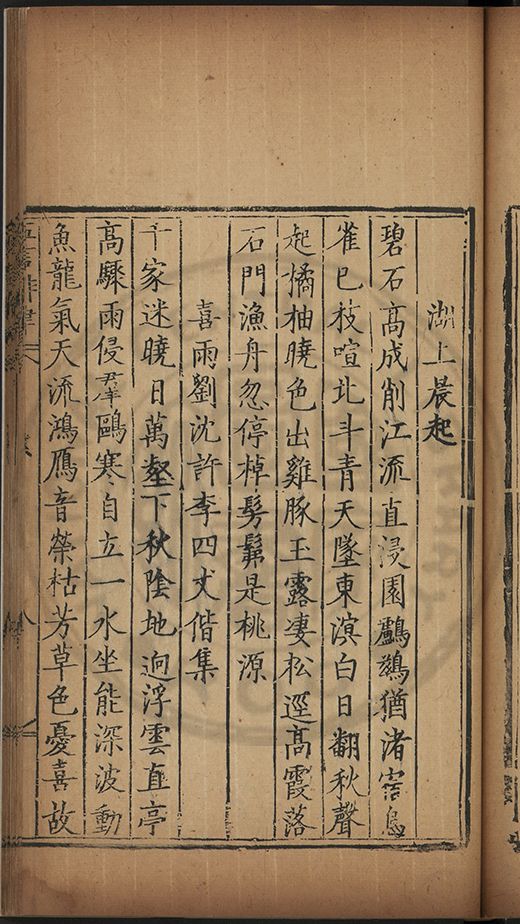 湖上晨起
碧石高成削江流直浸園鸕鷀猶渚宿烏
雀巳枝喧北斗青天墜東溟白日翻秋聲
起橘柚曉色出雞豚玉露凄松逕高霞落
石門漁舟忽停棹髣髴是桃源
喜雨劉沈許李四丈偕集
千家迷曉日萬壑下秋陰地迥浮雲直亭
高驟雨侵羣鷗寒自立一水坐能深波動
魚龍氣天流鴻鴈音榮枯芳草色憂喜故
五言排律 八